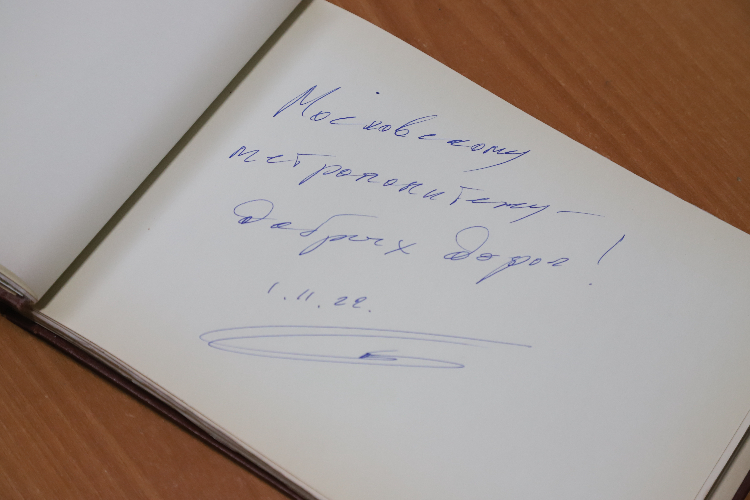 Московскому
метрополитену —
добрых дорог!
1.11.22.